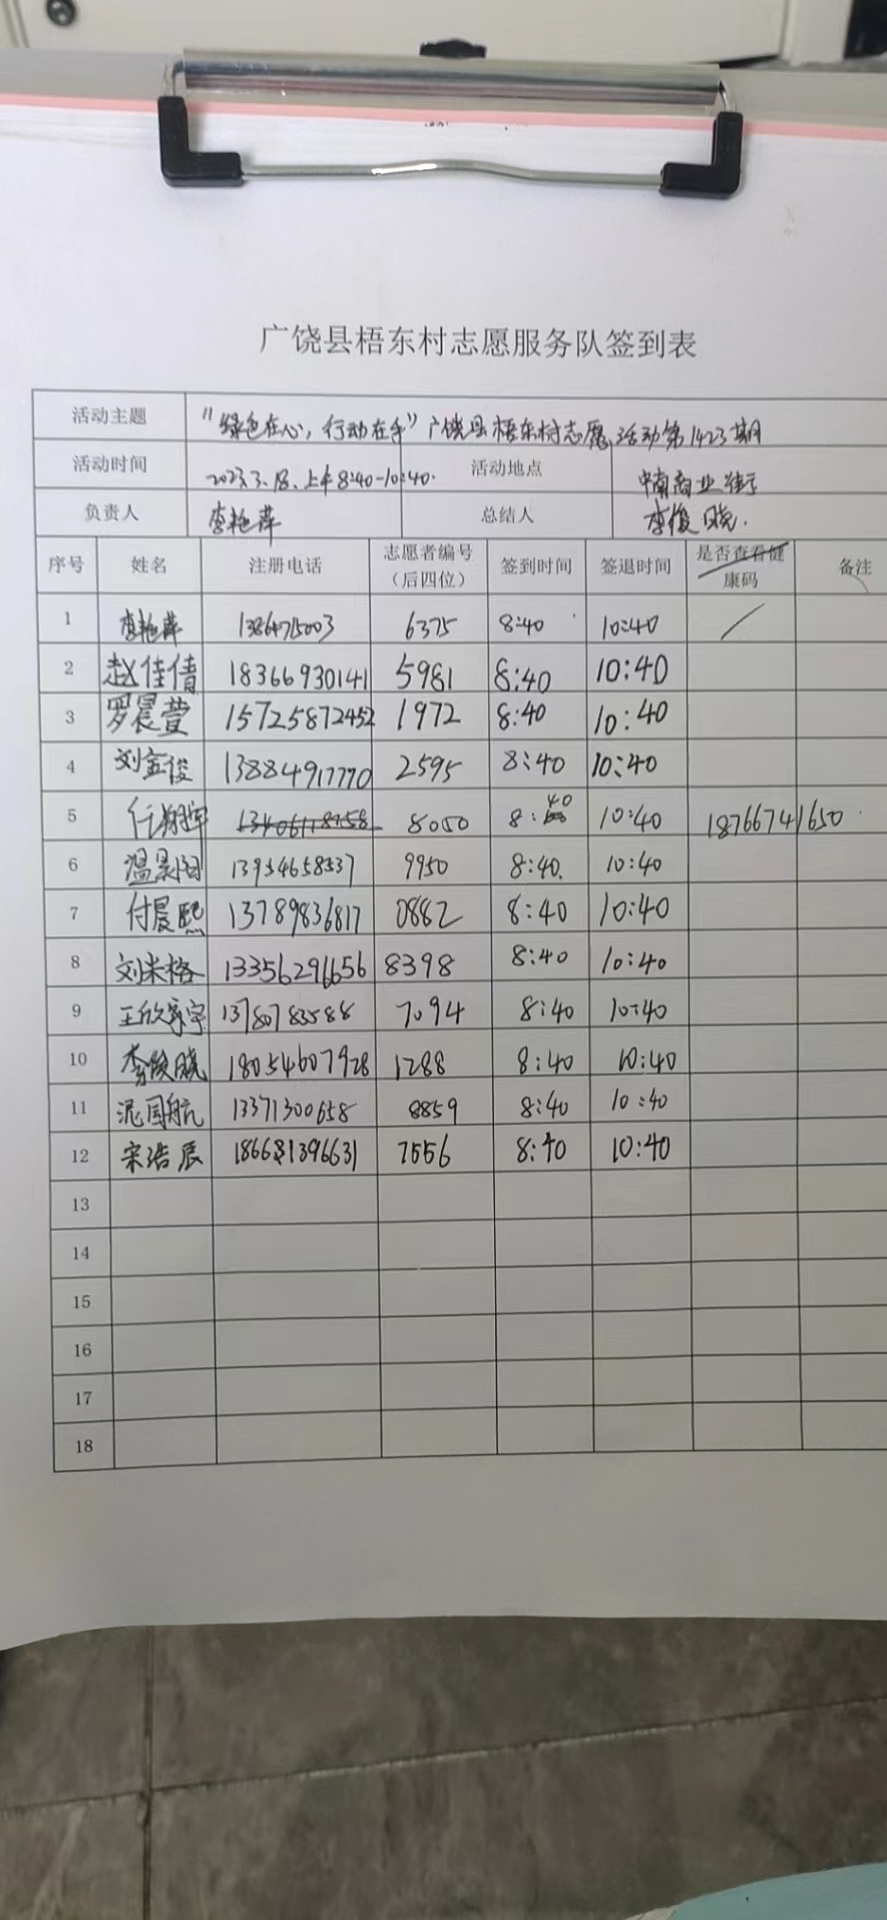 广饶县梧东村志愿服务队签到表
活动主题 "绿色在心，行动在手"广饶县梧东村志愿活动第1423期
活动时间 2023.3.18.上午8:40-10:40. 活动地点 中南商业街
负责人 李艳萍 总结人 李俊晓.
序号 姓名 注册电话 志愿者编号（后四位） 签到时间 签退时间 是否查看健康码 备注
1 李艳萍 13864715003 6375 8:40 10:40 /
2 赵佳倩 18366930141 5981 8:40 10:40
3 罗晨萱 15725872452 1972 8:40 10:40
4 刘金俊 13884917770 2595 8:40 10:40
5 任翔宇 13406118758 8050 8:40 10:40 18766741650
6 温景阳 13954658537 9950 8:40. 10:40
7 付晨熙 13789836817 0882 8:40 10:40
8 刘米格 13356296656 8398 8:40 10:40
9 王欣家宇 13780783588 7094 8:40 10:40
10 李俊晓 18054607928 1288 8:40 10:40
11 泥国航 13371300658 8859 8:40 10:40
12 宋浩辰 186681396631 7556 8:40 10:40
13
14
15
16
17
18